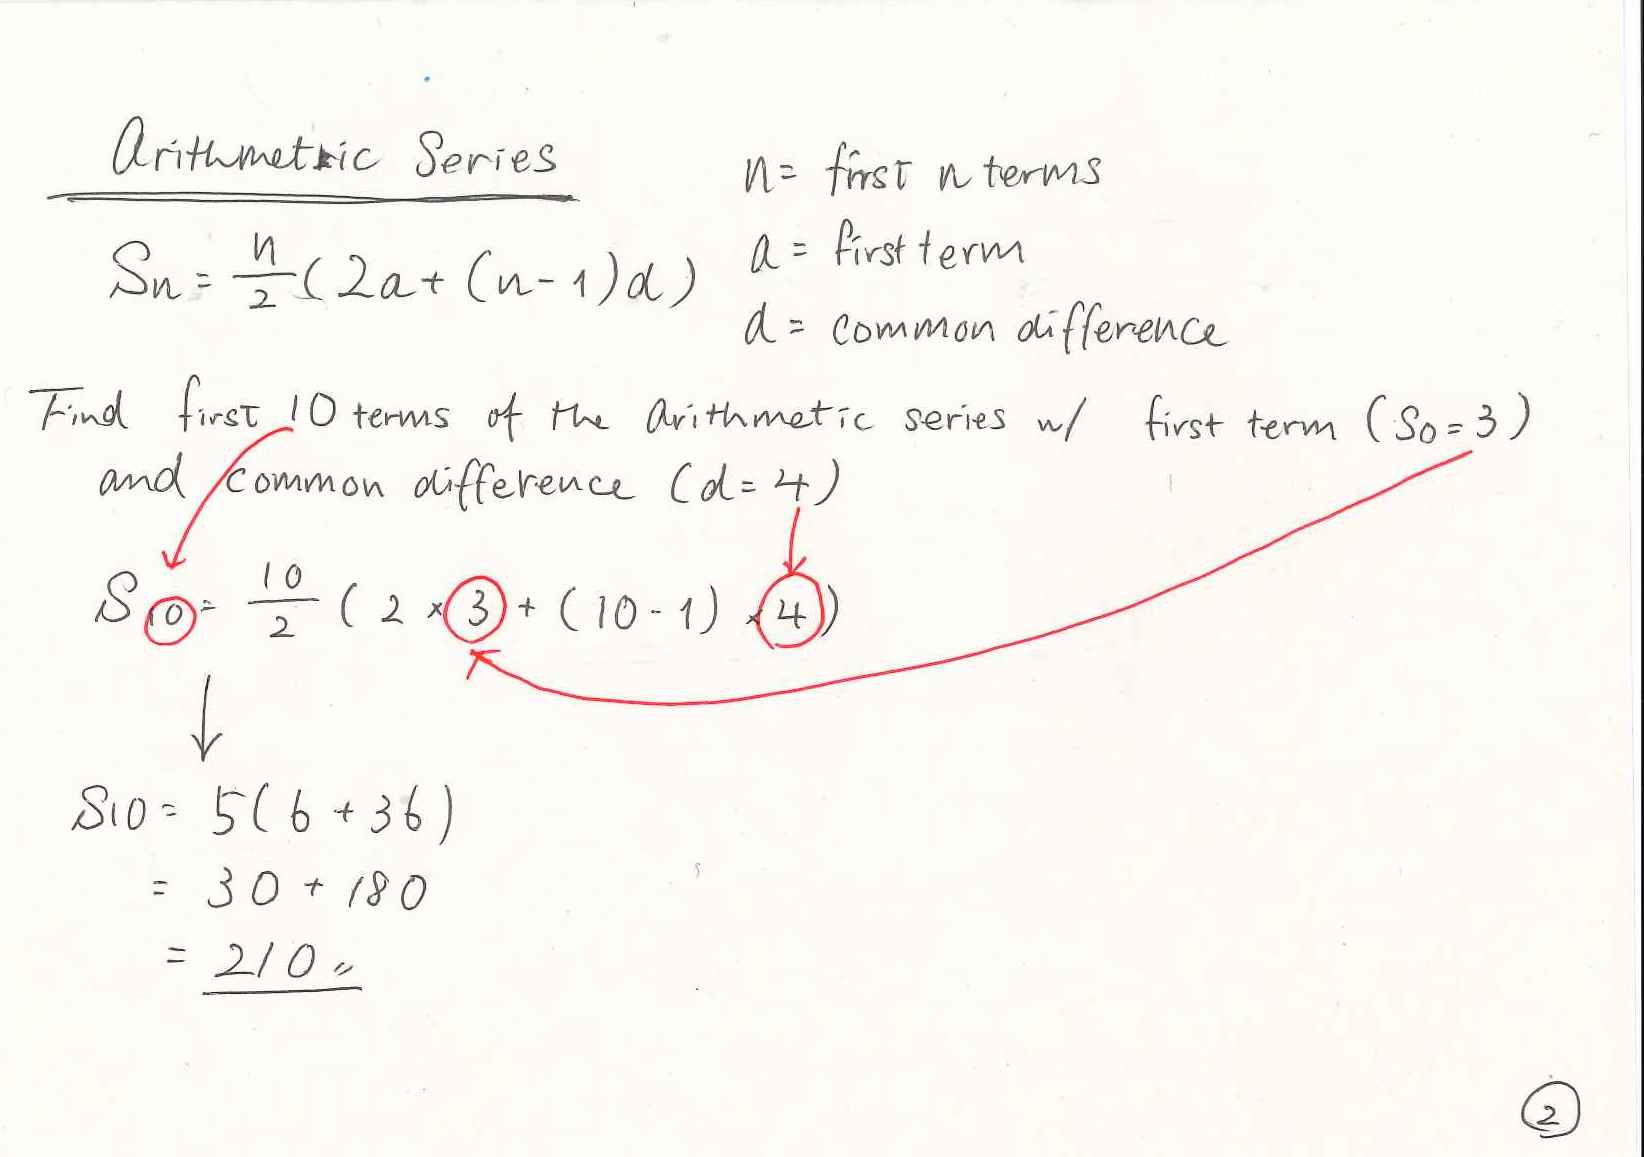 Arithmetric Series
Sn = n/2 (2a + (n-1)d)
n = first n terms
a = first term
d = common difference
Find first 10 terms of the arithmetic series w/ first term (S0 = 3)
and common difference (d = 4)
S10 = 10/2 (2 × 3 + (10 - 1) × 4)
S10 = 5(6 + 36)
= 30 + 180
= 210
2